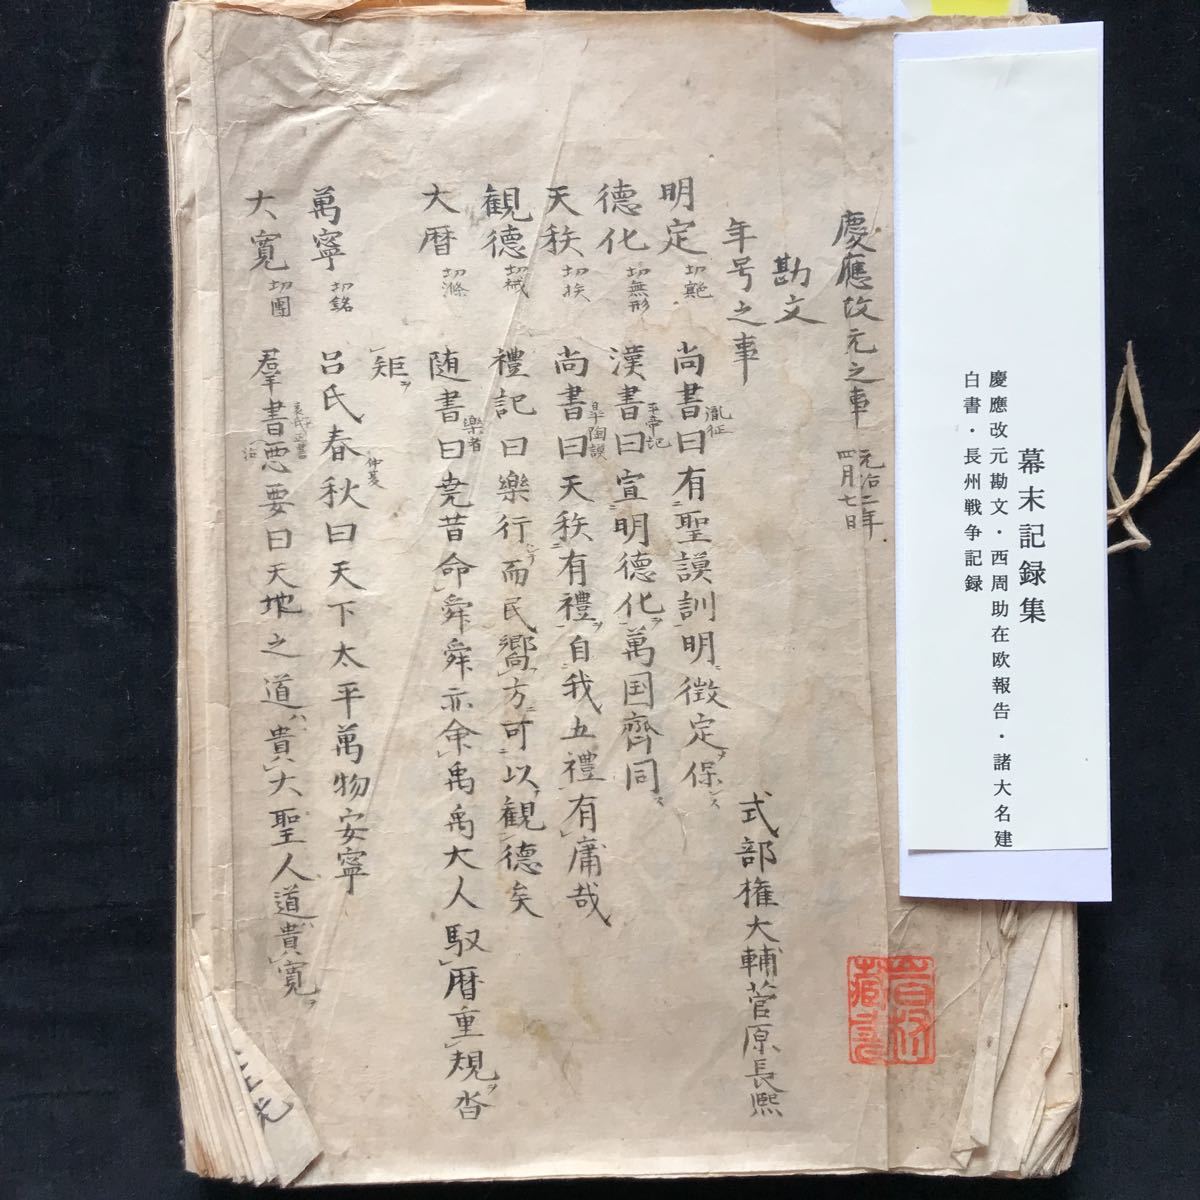 幕末記録集
慶應改元勘文・西周助在欧報告・諸大名建
白書・長州戦争記録
慶應改元之事 元治二年四月七日
勘文
年号之事
式部権大輔菅原長熙
明定 切 尚書曰有聖謨訓明徴定保 胤征
德化 切無形 漢書曰宣明德化萬国齊同 平帝記
天秩 切挨 尚書曰天秩有禮自我五禮有庸哉 皐陶謨
観德 切械 禮記曰樂行而民嚮方可以観德矣 樂者
大暦 切滌 随書曰尭昔命舜舜亦命禹禹大人馭暦重規沓
矩
萬寧 切銘 呂氏春秋曰天下太平萬物安寧 仲夏
大寛 切團 羣書要曰天地之道貴大聖人道貴寛